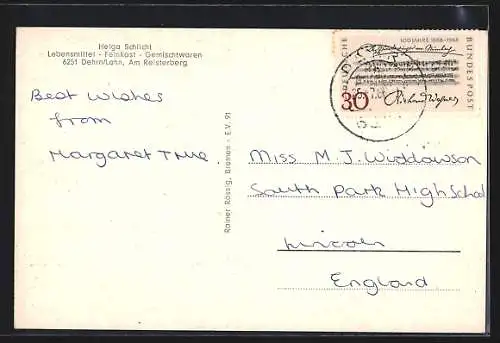 Helga Schlicht
Lebensmittel - Feinkost - Gemischtwaren
6251 Dehrn/Lahn, Am Reisterberg
Best Wishes
from
Margaret True.
Rainer Rössig, Bremen - E.V. 91
DEUTSCHE
100 JAHRE 1868-1968
BUNDESPOST
30
Richard Wagner
Miss M. J. Widdowson
South Park High School
Lincoln
England